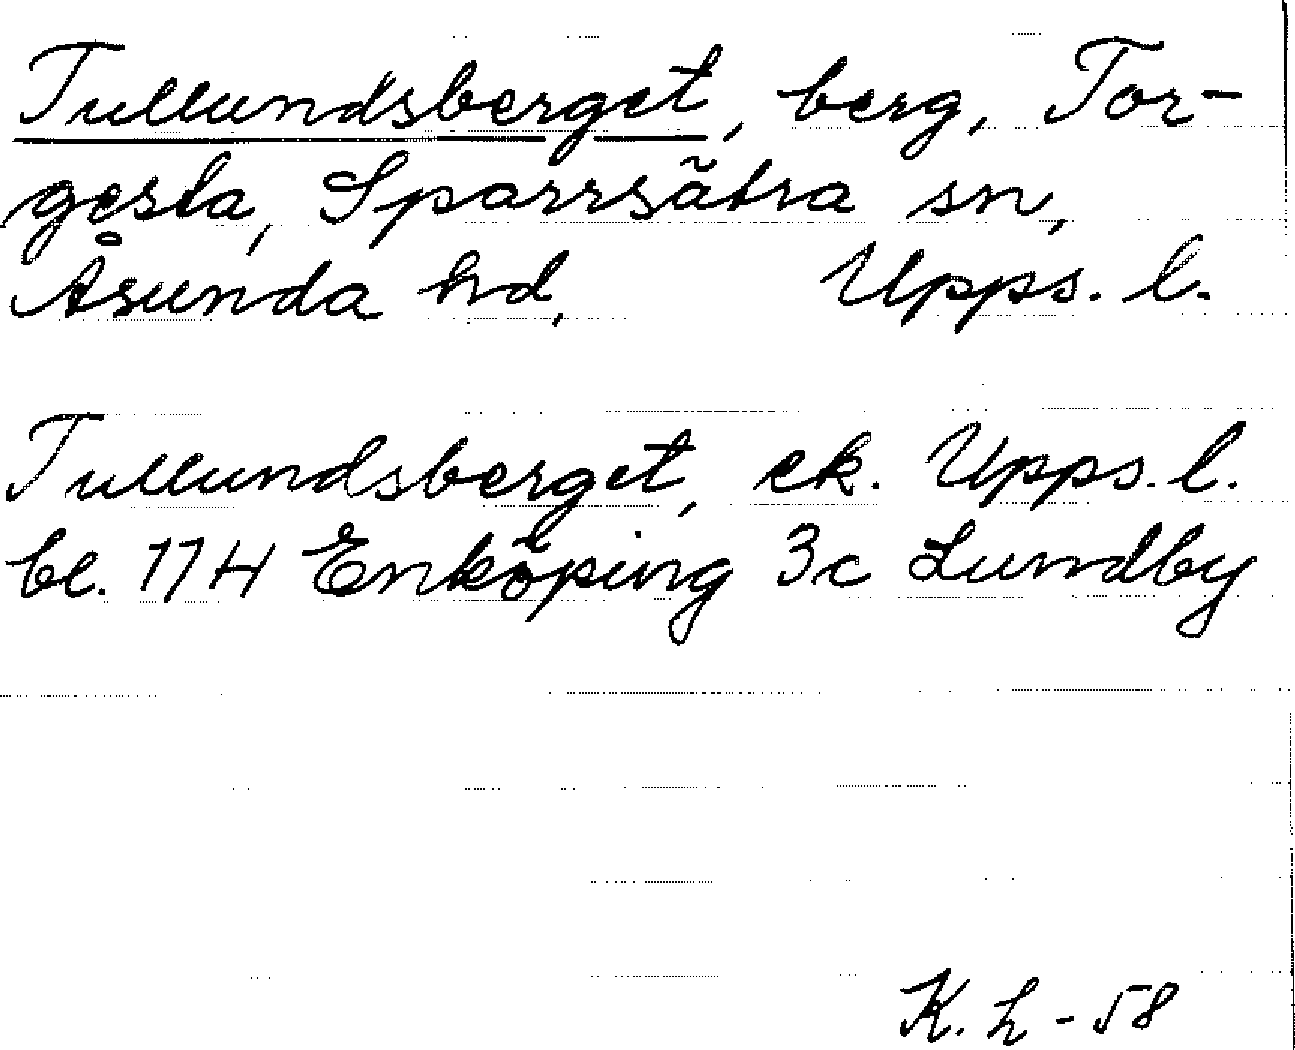 Tullundsberget, berg, Tor-
gesta, Sparrsätra sn,
Åsunda hd, Upps. l.
Tullundsberget, ek. Upps. l.
bl. 11H Enköping 3c Lundby
K. L - 58